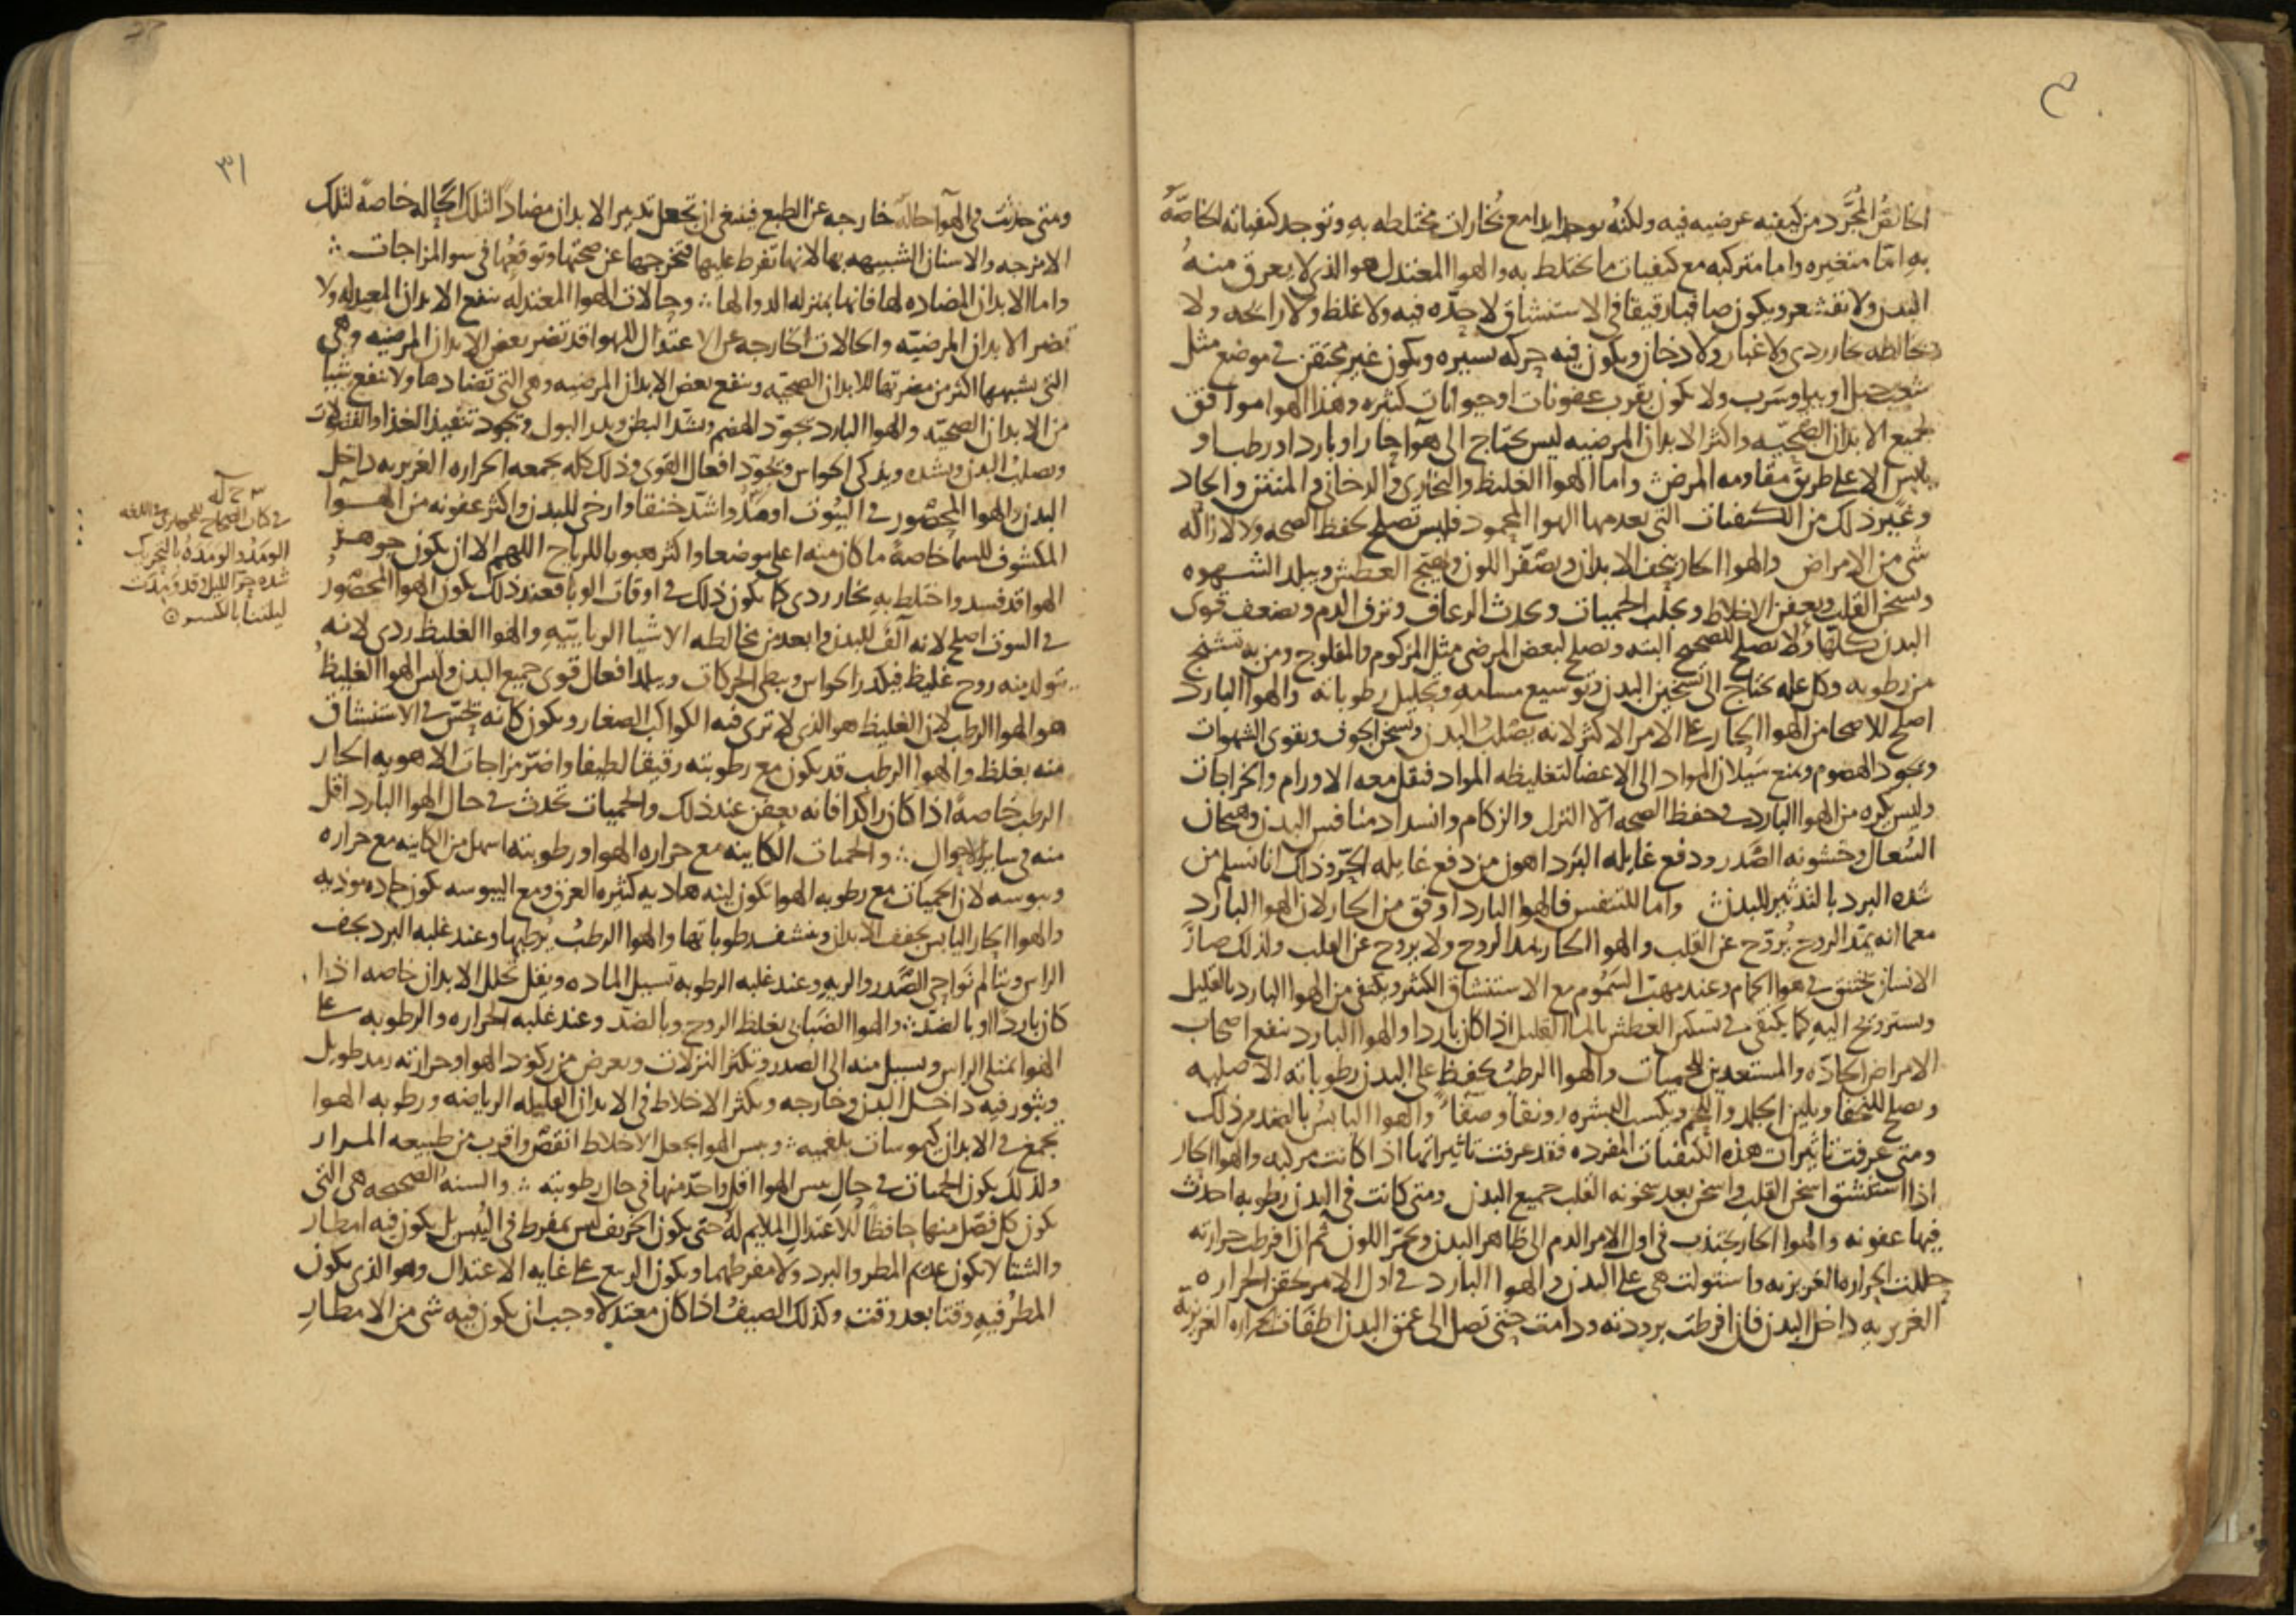 الخالص المجرد من كيفيه عرضيه فيه ولكنه يوجد ابدا مع بخارات مختلطه به وتوجد كيفياته الخاصة
به اما متغيره واما متركبه مع كيفيات ما يختلط به والهوا المعتدل هو الذي لا يعرق منه
البدن ولا يقشعر ويكون صافيا رقيقا في الاستنشاق لا حده فيه ولا غلظ ولا رايحه ولا
يخالطه بخار ردي ولا غبار ولا دخان ويكون فيه حركه يسيره ويكون غير محتقن في موضع مثل
شعب جبل او بير او سرب ولا يكون بقرب عفونات او حيوانات كثيره وهذا الهوا موافق
لجميع الابدان الصحيه واكثر الابدان المرضيه ليس يحتاج الى هوا حار او بارد او رطب او
يابس الا على طريق مقاومه المرض واما الهوا الغليظ والبخاري والدخاني والمنتن والحاد
وغير ذلك من الكيفيات التي يعدم بها الهوا المحمود فليس تصلح لحفظ الصحه ولا لازاله
شي من الامراض والهوا الحار ينحف الابدان ويصفر اللون ويهيج العطش ويبلد الشهوه
ويسخن القلب ويعفن الاخلاط ويجلب الحميات ويحدث الرعاف ونزف الدم ويضعف قوى
البدن كلها ولا يصلح للصحيح البته ويصلح لبعض المرضى مثل المزكوم والمفلوج ومن به تشنج
من رطوبه وكل عله يحتاج الى تسخين البدن وتوسيع مسامه وتحليل رطوباته والهوا البارد
اصلح للاصحا من الهوا الحار على الامر الاكثر لانه يصلب البدن ويسخن الجوف ويقوي الشهوات
ويجود الهضوم ويمنع سيلان المواد الى الاعضا لتغليظه المواد فتقل معه الاورام والخراجات
وليس يكره من الهوا البارد في حفظ الصحه الا النزل والزكام وانسداد منافس البدن وهيجان
السعال وخشونه الصدر ودفع غايله البرد اهون من دفع غايله الحر وذلك انا نسلم من
شده البرد بالتدثير للبدن واما للتنفس فالهوا البارد اوفق من الحار لان الهوا البارد
مع ما انه يمد الروح يروح عن القلب والهوا الحار يمد الروح ولا يروح عن القلب ولذلك صار
الانسان يختنق في هوا الحمام وعند مهب السموم مع الاستنشاق الكثير ويكتفي من الهوا البارد بالقليل
ويستروح اليه كما يكتفي في تسكين العطش بالما القليل اذا كان باردا والهوا البارد ينفع اصحاب
الامراض الحاده والمستعدين للحميات والهوا الرطب يحفظ على البدن رطوباته الاصليه
ويصلح للنحفا ويلين الجلد واللحم ويكسب البشره رونقا وصفا والهوا اليابس بالضد من ذلك
ومتى عرفت تاثيرات هذه الكيفيات المفرده فقد عرفت تاثيراتها اذا كانت مركبه والهوا الحار
اذا استنشق اسخن القلب واسخن بعد سخونه القلب جميع البدن ومتى كانت في البدن رطوبه احدث
فيها عفونه والهوا الحار يجتذب في اول الامر الدم الى ظاهر البدن ويحمر اللون ثم ان افرطت حرارته
حللت الحراره الغريزيه واستولت هي على البدن والهوا البارد في اول الامر يحقن الحراره
الغريزيه داخل البدن فان افرطت برودته ودامت حتى تصل الى عمق البدن اطفات الحراره الغريزية
٣١
ومتى حدثت في الهوا حالة خارجه عن الطبع فينبغي ان تجعل تدبير الابدان مضادا لتلك الحاله خاصة لتلك
الامزجه والاسنان الشبيهه بها لانها تفرط عليها فتخرجها عن صحتها وتوقعها في سو المزاجات
واما الابدان المضاده لها فانها بمنزله الدوا لها وحالات الهوا المعتدله تنفع الابدان المعتدله ولا
تضر الابدان المرضيه والحالات الخارجه عن الاعتدال للهوا قد تضر بعض الابدان المرضيه وهي
التي تشبهها اكثر من مضرتها للابدان الصحيه وينفع بعض الابدان المرضيه وهي التي تضادها ولا تنفع شيا
من الابدان الصحيه والهوا البارد يجود الهضم ويشد البطن ويدر البول ويجود تنفيذ الغذا والفضلات
ويصلب البدن ويشده ويذكي الحواس ويجود افعال القوى وذلك كله بجمعه الحراره الغريزيه داخل
البدن والهوا المحصور في البيوت اومد واشد خنقا وارخى للبدن واكثر عفونه من الهوا
المكشوف للسما خاصة ما كان منه اعلى موضعا واكثر هبوبا للرياح اللهم الا ان يكون جوهر
الهوا قد فسد واختلط به بخار ردي كما يكون ذلك في اوقات الوبا فعند ذلك يكون الهوا المحصور
في البيوت اصلح لانه آلف للبدن وابعد من مخالطه الاشيا الوبايية والهوا الغليظ ردي لانه
يتولد منه روح غليظ فيكدر الحواس ويبطي الحركات ويبلد افعال قوى جميع البدن وليس الهوا الغليظ
هو الهوا الرطب لان الغليظ هو الذي لا ترى فيه الكواكب الصغار ويكون كانه يحس في الاستنشاق
منه بغلظ والهوا الرطب قد يكون مع رطوبته رقيقا لطيفا واضر مزاجات الاهويه الحار
الرطب خاصة اذا كان راكدا فانه يعفن عند ذلك والحميات تحدث في حال الهوا البارد اقل
منه في ساير الاحوال والحميات الكاينه مع حراره الهوا ورطوبته اسهل من الكاينه مع حراره
ويبوسه لان الحميات مع رطوبه الهوا تكون لينه هاديه كثيره العرق ومع اليبوسه تكون حاده موذيه
والهوا الحار اليابس يجفف الابدان وينشف رطوباتها والهوا الرطب يرطبها وعند غلبه البرد يجف
الراس ويتالم نواحي الصدر والريه وعند غلبه الرطوبه تسيل الماده ويقل تحلل الابدان خاصه اذا
كان باردا وبالضد والهوا الضبابي يغلظ الروح وبالضد وعند غلبه الحراره والرطوبه على
الهوا يمتلي الراس ويسيل منه الى الصدر وتكثر النزلات ويعرض من ركود الهوا وحرارته رمد طويل
وبثور فيه داخل البدن وخارجه وتكثر الاخلاط في الابدان القليله الرياضه ورطوبه الهوا
تجمع في الابدان كيموسات بلغميه ويبس الهوا يجعل الاخلاط انقص واقرب من طبيعه المرار
ولذلك يكون الحميات في حال يبس الهوا اقل واحد منها في حال رطوبته والسنه الصحيحه هي التي
يكون كل فصل منها حافظا للاعتدال الملايم له حتى يكون الخريف ليس بمفرط في اليبس بل يكون فيه امطار
والشتا لا يكون عديم المطر والبرد ولا مفرطهما ويكون الربيع على غايه الاعتدال وهو الذي يكون
المطر فيه وقتا بعد وقت وكذلك الصيف اذا كان معتدلا وجب ان يكون فيه شي من الامطار
في كتاب الصحاح للجوهري في اللغه
الومد والومدة بالتحريك
شده حر الليل وقد ومدت
ليلتنا بالكسر